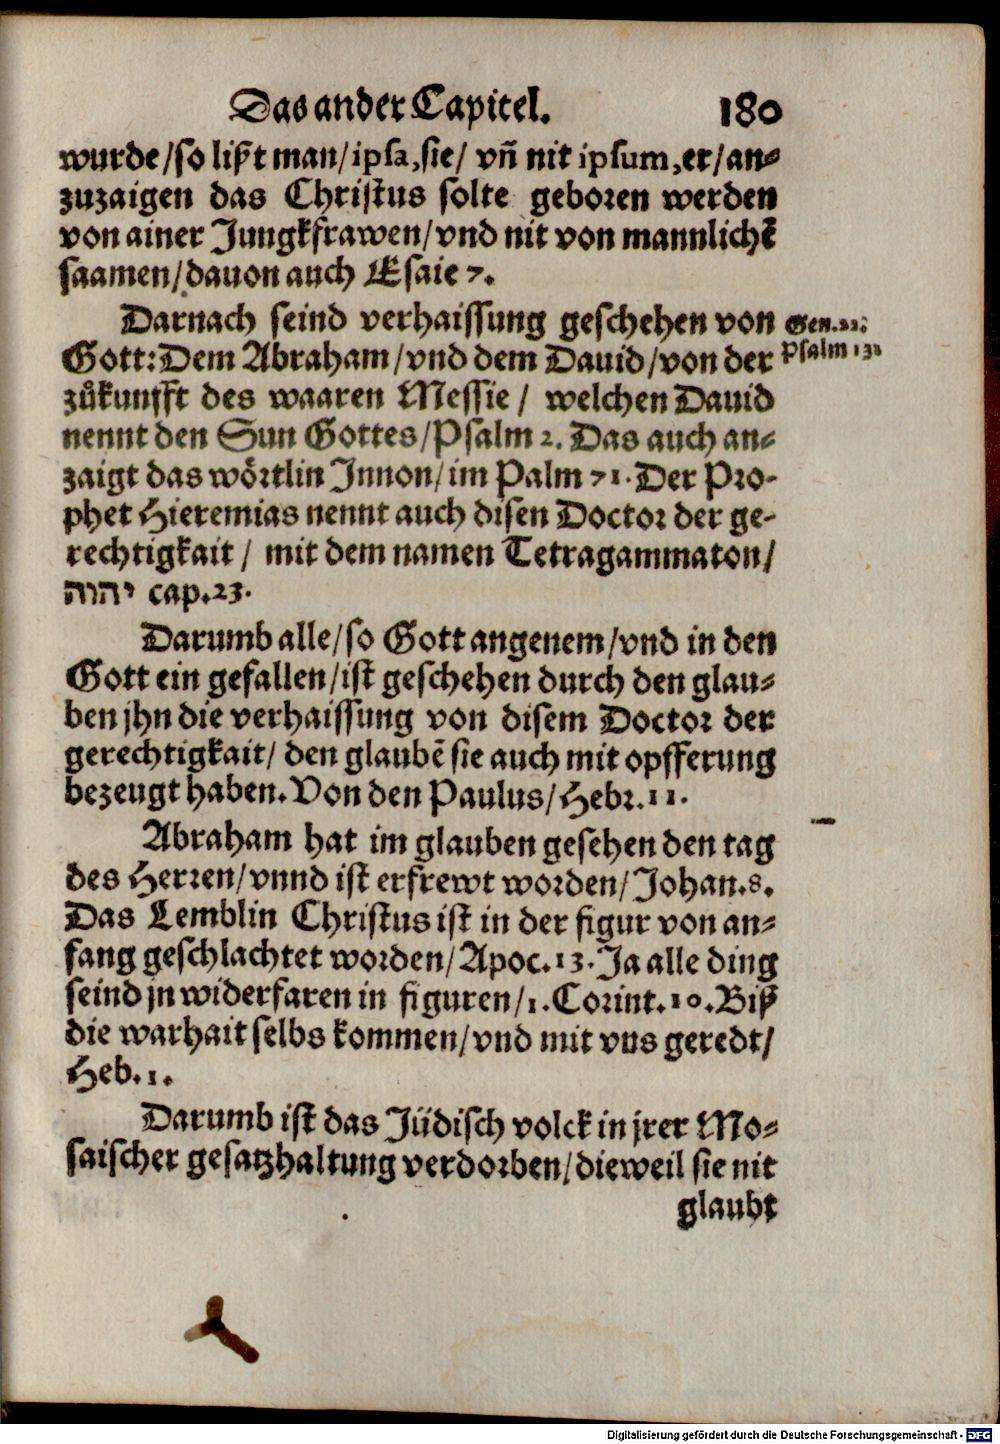 Das ander Capitel. 180
wurde/so lißt man/ipsa,sie/ vñ nit ipsum,er/an-
zuzaigen das Christus solte geboren werden
von ainer Jungkfrawen/vnd nit von mannlichẽ
saamen/dauon auch Esaie 7.
Darnach seind verhaissung geschehen von
Gen.22.
Gott:Dem Abraham/vnd dem Dauid/von der
Psalm 131
zůkunfft des waaren Messie/ welchen Dauid
nennt den Sun Gottes/Psalm 2. Das auch an-
zaigt das wörtlin Innon/im Palm 71. Der Pro-
phet Hieremias nennt auch disen Doctor der ge-
rechtigkait/ mit dem namen Tetragammaton/
יהוה cap.23.
Darumb alle/so Gott angenem/vnd in den
Gott ein gefallen/ist geschehen durch den glau-
ben jhn die verhaissung von disem Doctor der
gerechtigkait/ den glaubẽ sie auch mit opfferung
bezeugt haben. Von den Paulus/Hebr.11.
Abraham hat im glauben gesehen den tag
des Herren/vnnd ist erfrewt worden/Johan.8.
Das Lemblin Christus ist in der figur von an-
fang geschlachtet worden/Apoc.13. Ja alle ding
seind jn widerfaren in figuren/1.Corint.10. Biß
die warhait selbs kommen/vnd mit vns geredt/
Heb.1.
Darumb ist das Jüdisch volck in jrer Mo-
saischer gesatzhaltung verdorben/dieweil sie nit
glaubt
Digitalisierung gefördert durch die Deutsche Forschungsgemeinschaft - DFG